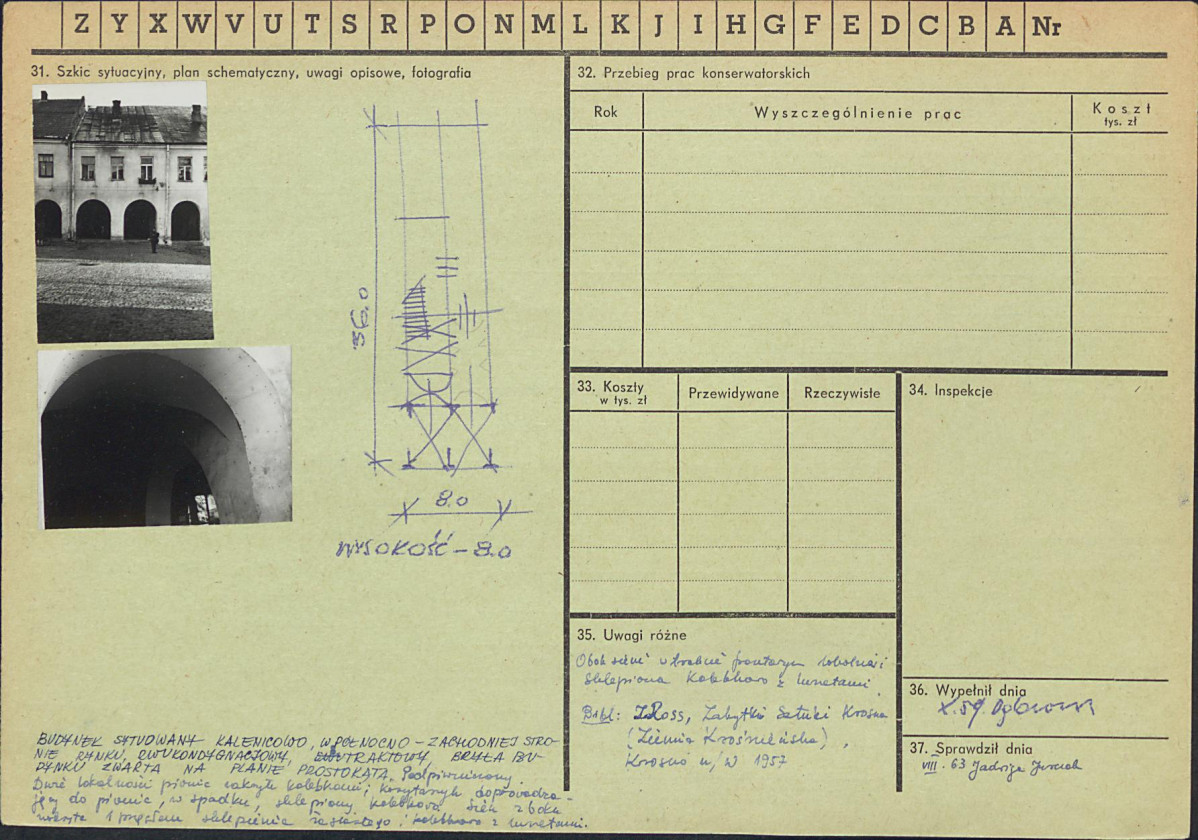 Z Y X W V U T S R P O N M L K J I H G F E D C B A Nr
31. Szkic sytuacyjny, plan schematyczny, uwagi opisowe, fotografia
36.0
8.0
WYSOKOŚĆ – 8.0
BUDYNEK SYTUOWANY KALENICOWO, W PÓŁNOCNO – ZACHODNIEJ STRO-
NIE RYNKU, DWUKONDYGNACJOWY, DWUTRAKTOWY, BRYŁA BU-
DYNKU ZWARTA NA PLANIE PROSTOKĄTA, Podpiwniczony.
Dwie piwnic kolebkami; doprowadza-
jący do piwnic, w spadku, sklepiony kolebkowo. Sień z boku
1 przęsłem sklepienia i kolebkowo z lunetami.
32. Przebieg prac konserwatorskich
Rok
Wyszczególnienie prac
Koszt
tys. zł
33. Koszty
w tys. zł
Przewidywane
Rzeczywiste
34. Inspekcje
35. Uwagi różne
Obok sieni w trakcie frontowym
sklepiona kolebkowo z lunetami.
Bibl: Ross, Zabytki Sztuki Krosna
(Ziemia Krośnieńska),
Krosno 1957
36. Wypełnił dnia
X.59.
37. Sprawdził dnia
VIII. 63 Jadwiga